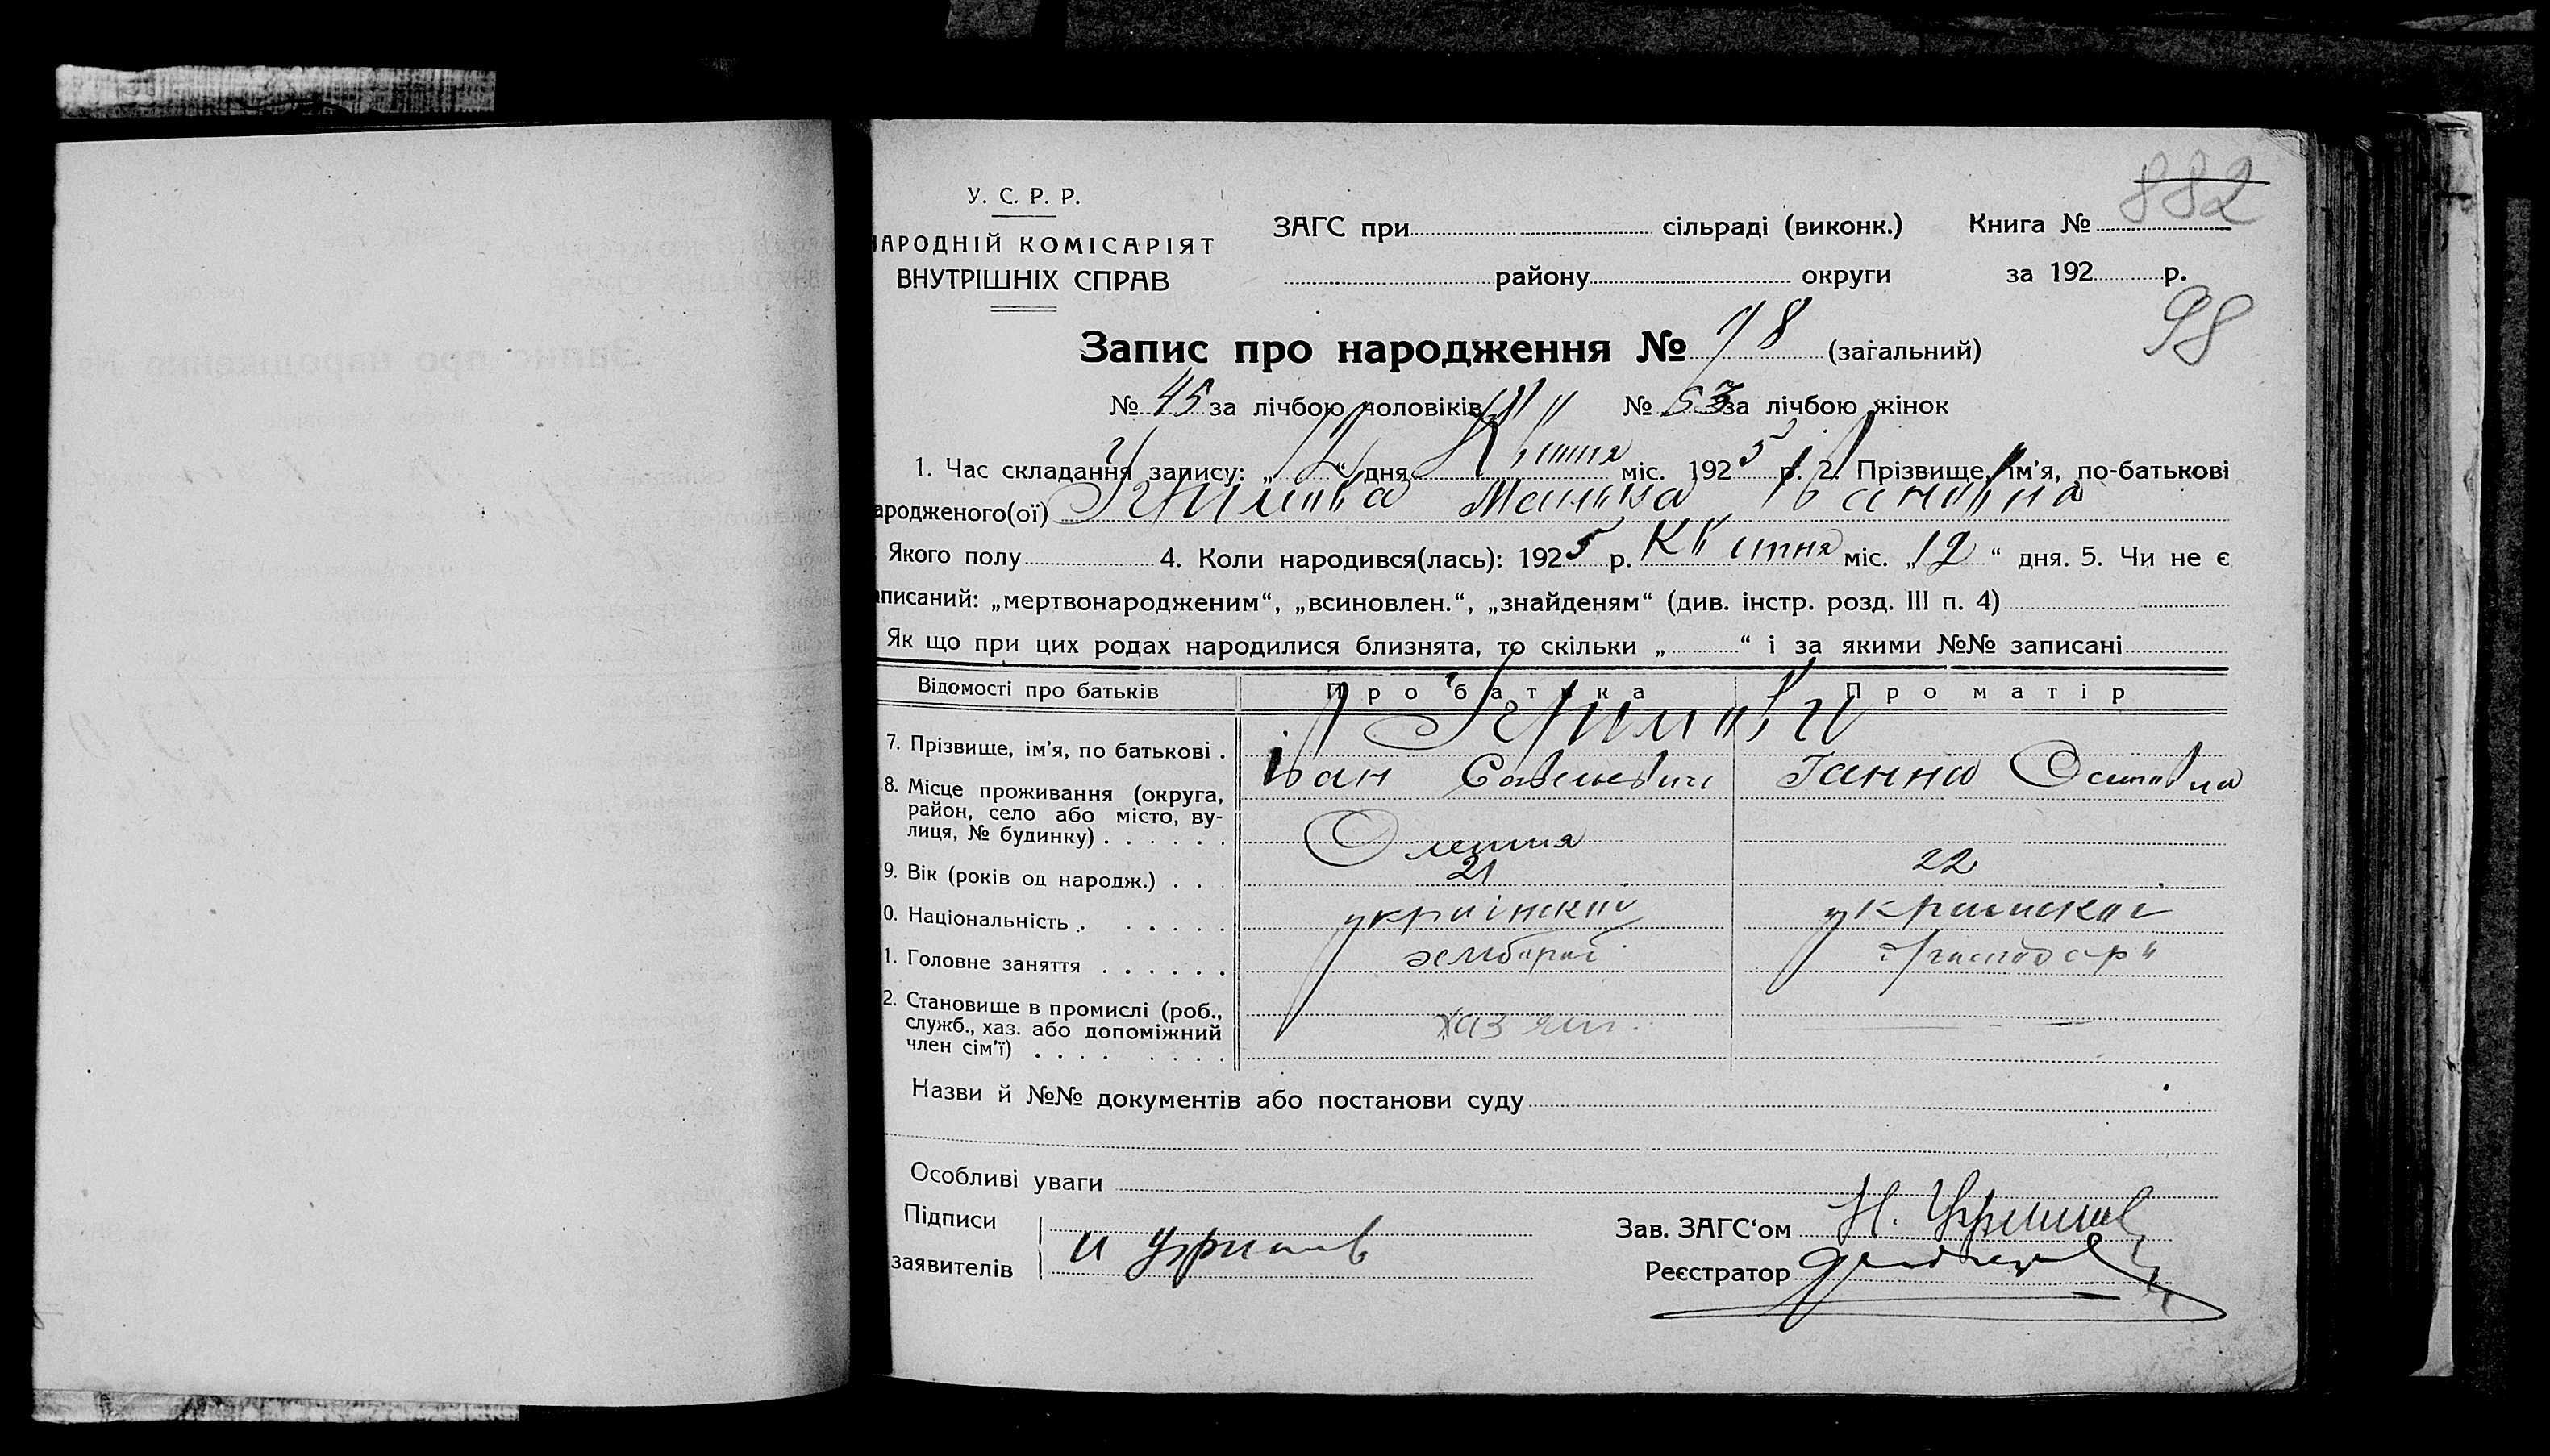 882
У. С. Р. Р.
НАРОДНІЙ КОМІСАРІЯТ
ВНУТРІШНІХ СПРАВ
ЗАГС при сільраді (виконк.) Книга №
району округи за 192 р.
98
Запис про народження № 98 (загальний)
№ 45 за лічбою чоловіків № 53 за лічбою жінок
1. Час складання запису: „12“ дня Квітня міс. 1925 р. 2. Прізвище, ім'я, по-батькові
ародженого(ої) Іванівна
Якого полу 4. Коли народився(лась): 1925 р. Квітня міс. „12“ дня. 5. Чи не є
аписаний: „мертвонародженим“, „всиновлен.“, „знайденям“ (див. інстр. розд. III п. 4)
Як що при цих родах народилися близнята, то скільки „ “ і за якими №№ записані
Відомості про батьків Про батька Про матір
7. Прізвище, ім'я, по батькові .
Іван Савельевич Ганна
8. Місце проживання (округа,
район, село або місто, ву-
лиця, № будинку) . . . . . .
9. Вік (років од народж.) . . . 21 22
0. Національність . . . . . . український
1. Головне заняття . . . . . . хлібороб
2. Становище в промислі (роб.,
служб., хаз. або допоміжний
член сім'ї) . . . . . . . . хазяїн
Назви й №№ документів або постанови суду
Особливі уваги
Підписи
заявителів
Зав. ЗАГС'ом
Реєстратор